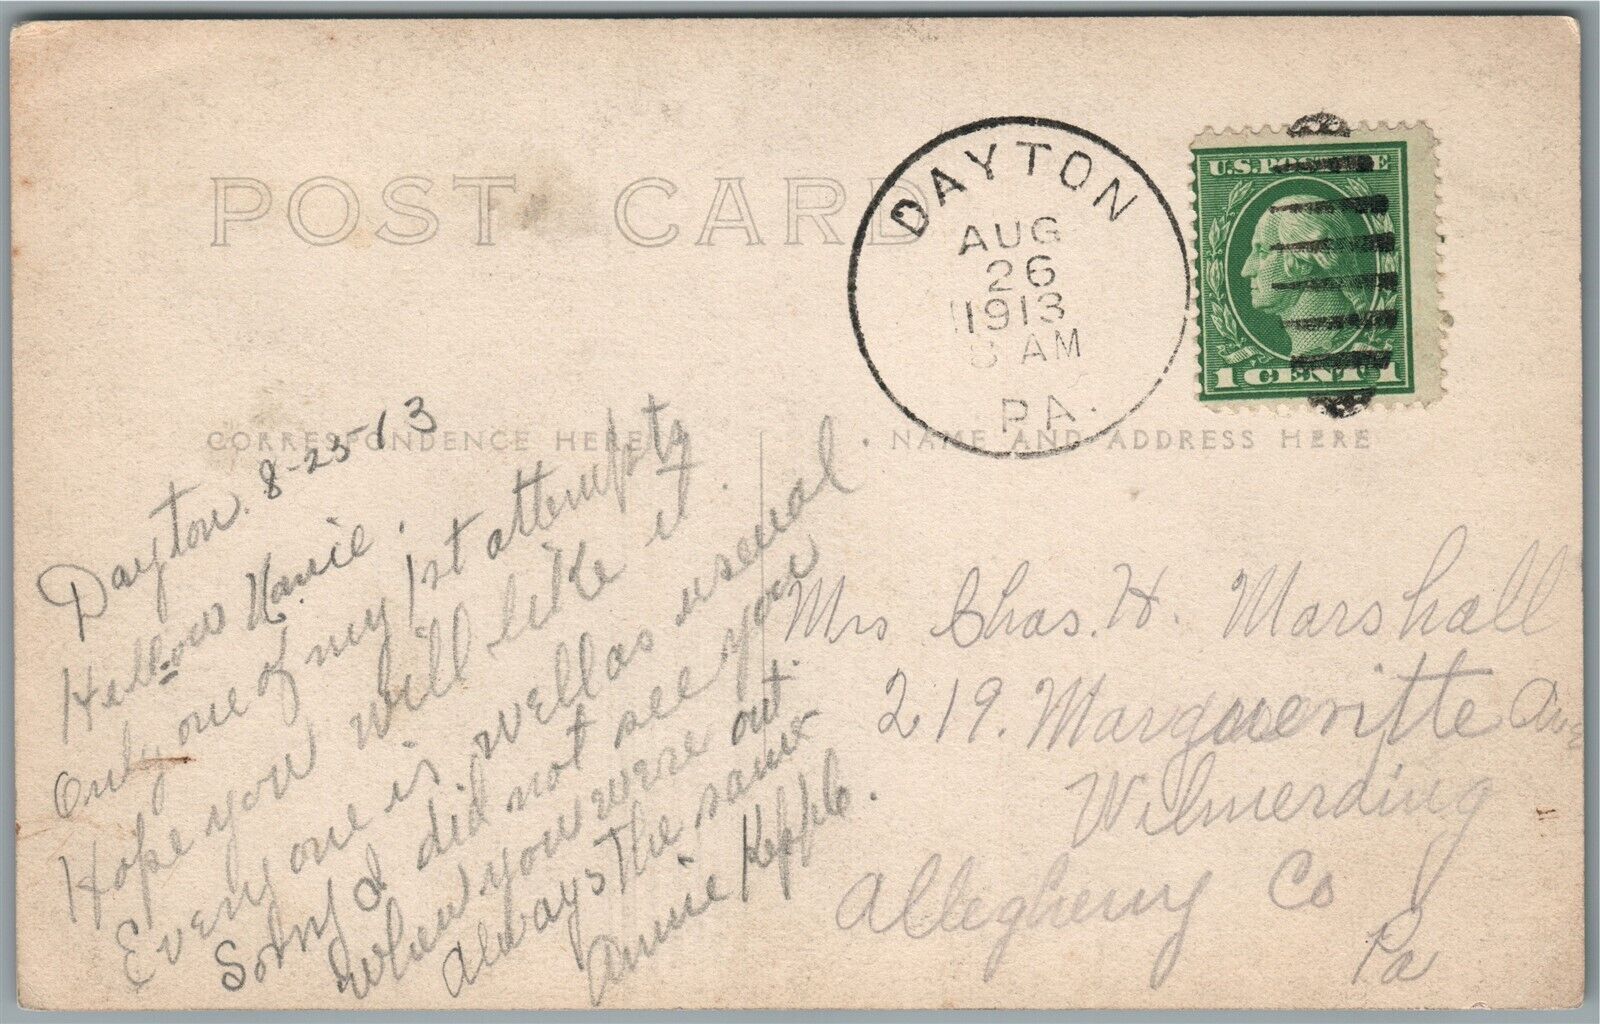 POST CARD
DAYTON
AUG
26
1913
8 AM
PA.
U.S. POSTAGE
1 CENT 1
CORRESPONDENCE HERE
NAME AND ADDRESS HERE
Dayton. 8-25-13
Hellow
Only one of my 1st attempts
Hope you will like it.
Everyone is well as usual.
Sorry I did not see you
when you were out.
Always the same
Annie
Mrs Chas. H. Marshall
219. Margueritte Ave
Wilmerding
Allegheny Co
Pa